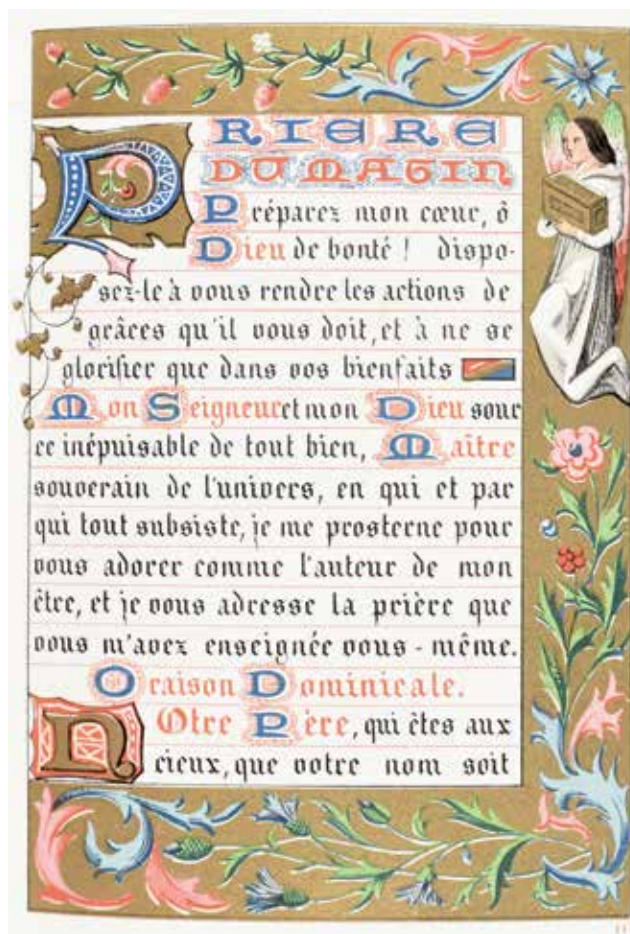 PRIERE
DU MATIN
Préparez mon cœur, ô
Dieu de bonté ! dispo-
sez-le à vous rendre les actions de
grâces qu'il vous doit, et à ne se
glorifier que dans vos bienfaits
Mon Seigneur et mon Dieu sour
ce inépuisable de tout bien, Maître
souverain de l'univers, en qui et par
qui tout subsiste, je me prosterne pour
vous adorer comme l'auteur de mon
être, et je vous adresse la prière que
vous m'avez enseignée vous-même.
Oraison Dominicale.
NOtre Père, qui êtes aux
cieux, que votre nom soit